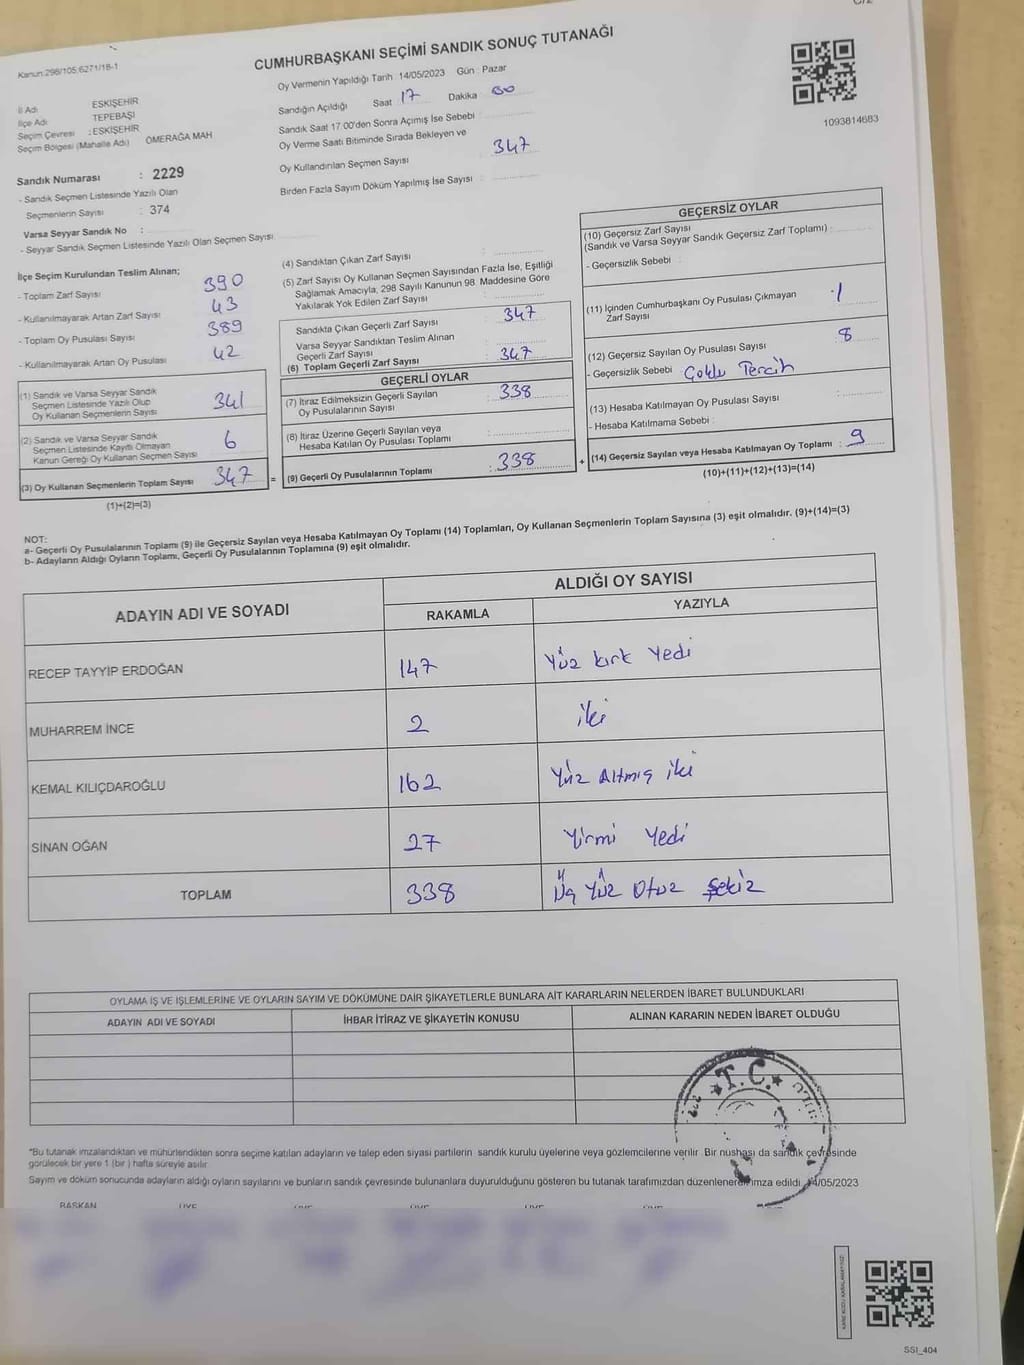 CUMHURBAŞKANI SEÇİMİ SANDIK SONUÇ TUTANAĞI
Kanun:298/105:6271/18-1
İl Adı ESKİŞEHİR
İlçe Adı TEPEBAŞI
Seçim Çevresi : ESKİŞEHİR
Seçim Bölgesi (Mahalle Adı) ÖMERAĞA MAH
Sandık Numarası : 2229
- Sandık Seçmen Listesinde Yazılı Olan
Seçmenlerin Sayısı : 374
Varsa Seyyar Sandık No :
- Seyyar Sandık Seçmen Listesinde Yazılı Olan Seçmen Sayısı
Oy Vermenin Yapıldığı Tarih : 14/05/2023 Gün : Pazar
Sandığın Açıldığı Saat 17 Dakika 00
Sandık Saat 17.00'den Sonra Açımış İse Sebebi :
Oy Verme Saati Bitiminde Sırada Bekleyen ve
Oy Kullandırılan Seçmen Sayısı 347
Birden Fazla Sayım Döküm Yapılmış İse Sayısı :
1093814683
İlçe Seçim Kurulundan Teslim Alınan;
- Toplam Zarf Sayısı 390
- Kullanılmayarak Artan Zarf Sayısı 43
- Toplam Oy Pusulası Sayısı 389
- Kullanılmayarak Artan Oy Pusulası 42
(1) Sandık ve Varsa Seyyar Sandık
Seçmen Listesinde Yazılı Olup
Oy Kullanan Seçmenlerin Sayısı 341
(2) Sandık ve Varsa Seyyar Sandık
Seçmen Listesinde Kayıtlı Olmayan
Kanun Gereği Oy Kullanan Seçmen Sayısı 6
(3) Oy Kullanan Seçmenlerin Toplam Sayısı 347
(1)+(2)=(3)
(4) Sandıktan Çıkan Zarf Sayısı :
(5) Zarf Sayısı Oy Kullanan Seçmen Sayısından Fazla İse, Eşitliği
Sağlamak Amacıyla, 298 Sayılı Kanunun 98. Maddesine Göre
Yakılarak Yok Edilen Zarf Sayısı :
Sandıkta Çıkan Geçerli Zarf Sayısı : 347
Varsa Seyyar Sandıktan Teslim Alınan
Geçerli Zarf Sayısı
(6) Toplam Geçerli Zarf Sayısı : 347
GEÇERLİ OYLAR
(7) İtiraz Edilmeksizin Geçerli Sayılan
Oy Pusulalarının Sayısı : 338
(8) İtiraz Üzerine Geçerli Sayılan veya
Hesaba Katılan Oy Pusulası Toplamı :
= (9) Geçerli Oy Pusulalarının Toplamı : 338 +
GEÇERSİZ OYLAR
(10) Geçersiz Zarf Sayısı
(Sandık ve Varsa Seyyar Sandık Geçersiz Zarf Toplamı) :
- Geçersizlik Sebebi :
(11) İçinden Cumhurbaşkanı Oy Pusulası Çıkmayan
Zarf Sayısı : 1
(12) Geçersiz Sayılan Oy Pusulası Sayısı : 8
- Geçersizlik Sebebi Çoklu Tercih
(13) Hesaba Katılmayan Oy Pusulası Sayısı :
- Hesaba Katılmama Sebebi :
(14) Geçersiz Sayılan veya Hesaba Katılmayan Oy Toplamı : 9
(10)+(11)+(12)+(13)=(14)
NOT:
a- Geçerli Oy Pusulalarının Toplamı (9) ile Geçersiz Sayılan veya Hesaba Katılmayan Oy Toplamı (14) Toplamları, Oy Kullanan Seçmenlerin Toplam Sayısına (3) eşit olmalıdır. (9)+(14)=(3)
b- Adayların Aldığı Oyların Toplamı, Geçerli Oy Pusulalarının Toplamına (9) eşit olmalıdır.
ADAYIN ADI VE SOYADI ALDIĞI OY SAYISI
RAKAMLA YAZIYLA
RECEP TAYYİP ERDOĞAN 147 Yüz kırk Yedi
MUHARREM İNCE 2 iki
KEMAL KILIÇDAROĞLU 162 Yüz Altmış iki
SİNAN OĞAN 27 Yirmi Yedi
TOPLAM 338 Üç Yüz Otuz Sekiz
OYLAMA İŞ VE İŞLEMLERİNE VE OYLARIN SAYIM VE DÖKÜMÜNE DAİR ŞİKAYETLERLE BUNLARA AİT KARARLARIN NELERDEN İBARET BULUNDUKLARI
ADAYIN ADI VE SOYADI İHBAR İTİRAZ VE ŞİKAYETİN KONUSU ALINAN KARARIN NEDEN İBARET OLDUĞU
★T.C.★
*Bu tutanak imzalandıktan ve mühürlendikten sonra seçime katılan adayların ve talep eden siyasi partilerin sandık kurulu üyelerine veya gözlemcilerine verilir. Bir nüshası da sandık çevresinde
görülecek bir yere 1 (bir) hafta süreyle asılır.
Sayım ve döküm sonucunda adayların aldığı oyların sayılarını ve bunların sandık çevresinde bulunanlara duyurulduğunu gösteren bu tutanak tarafımızdan düzenlenerek imza edildi. 14/05/2023
BAŞKAN ÜYE ÜYE ÜYE ÜYE ÜYE
SSI_404